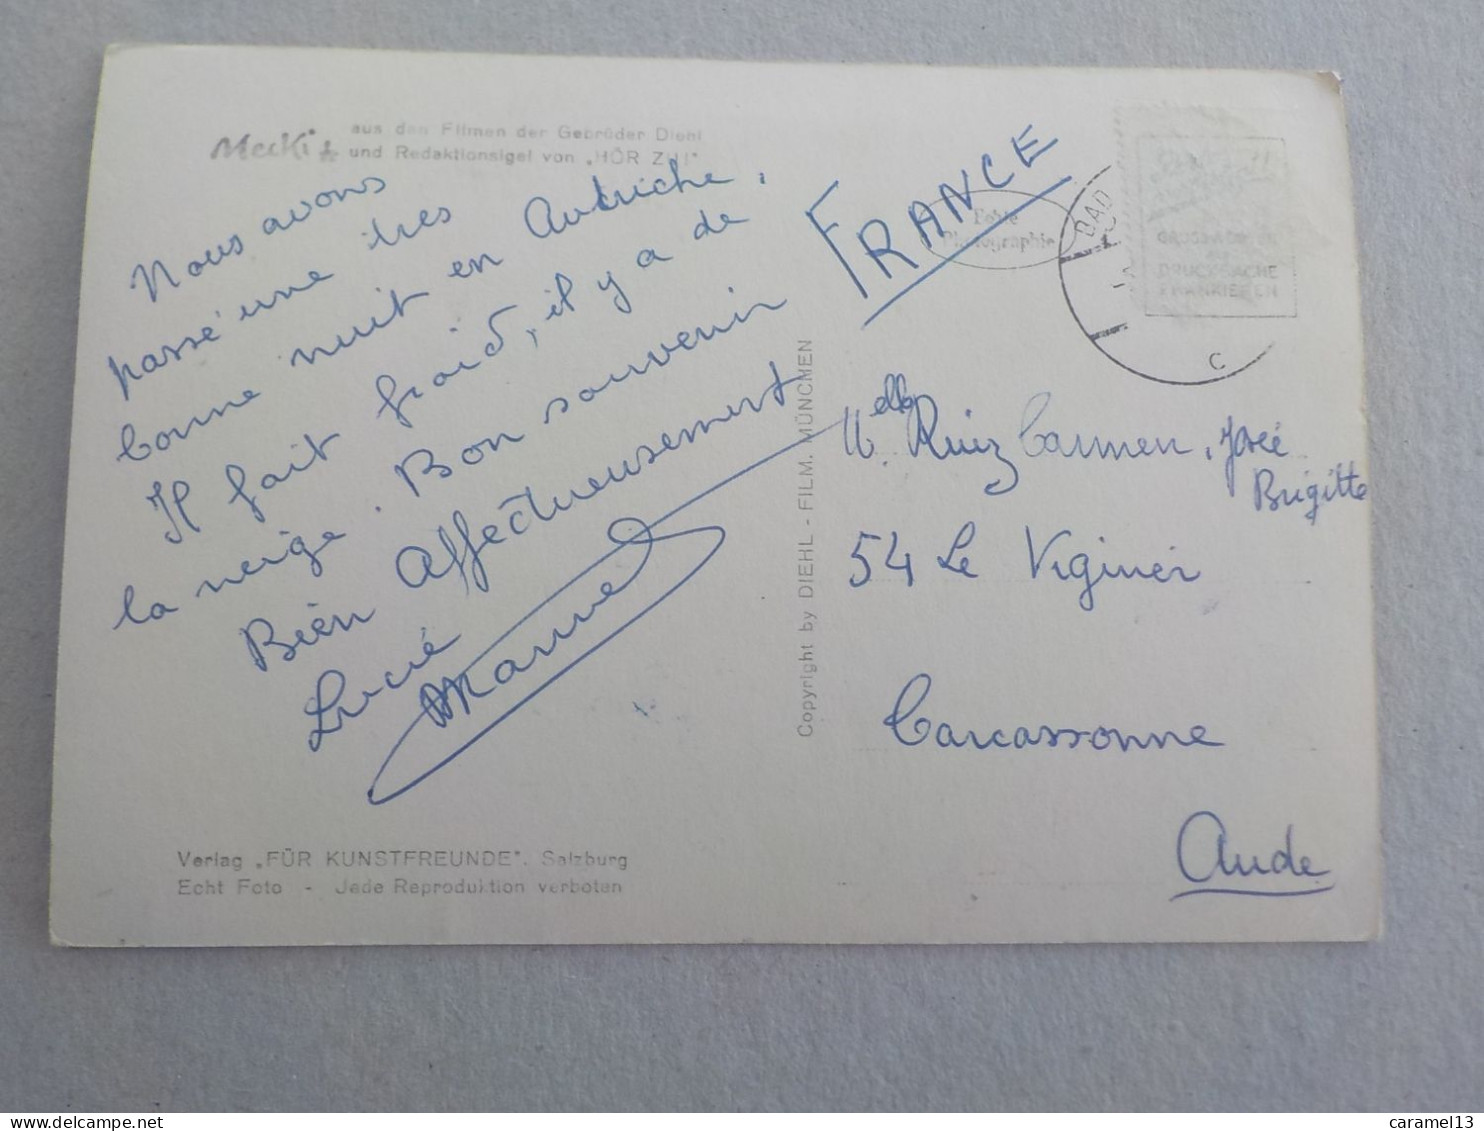 Mecki
aus den Filmen der Gebrüder Diehl
und Redaktionsigel von "HÖR ZU!"
Nous avons
passé une très
bonne nuit en Autriche.
Il fait froid, il y a de
la neige. Bon souvenir
Bien Affectueusement
Lucie
Manuel
Verlag "FÜR KUNSTFREUNDE", Salzburg
Echt Foto - Jede Reproduktion verboten
Copyright by DIEHL - FILM. MÜNCHEN
FRANCE
Echte
Photographie
BAD
C
DRUCKSACHE
FRANKIEREN
Melles Ruiz Carmen, José
Brigitte
54 Le Viginier
Carcassonne
Aude
caramel13